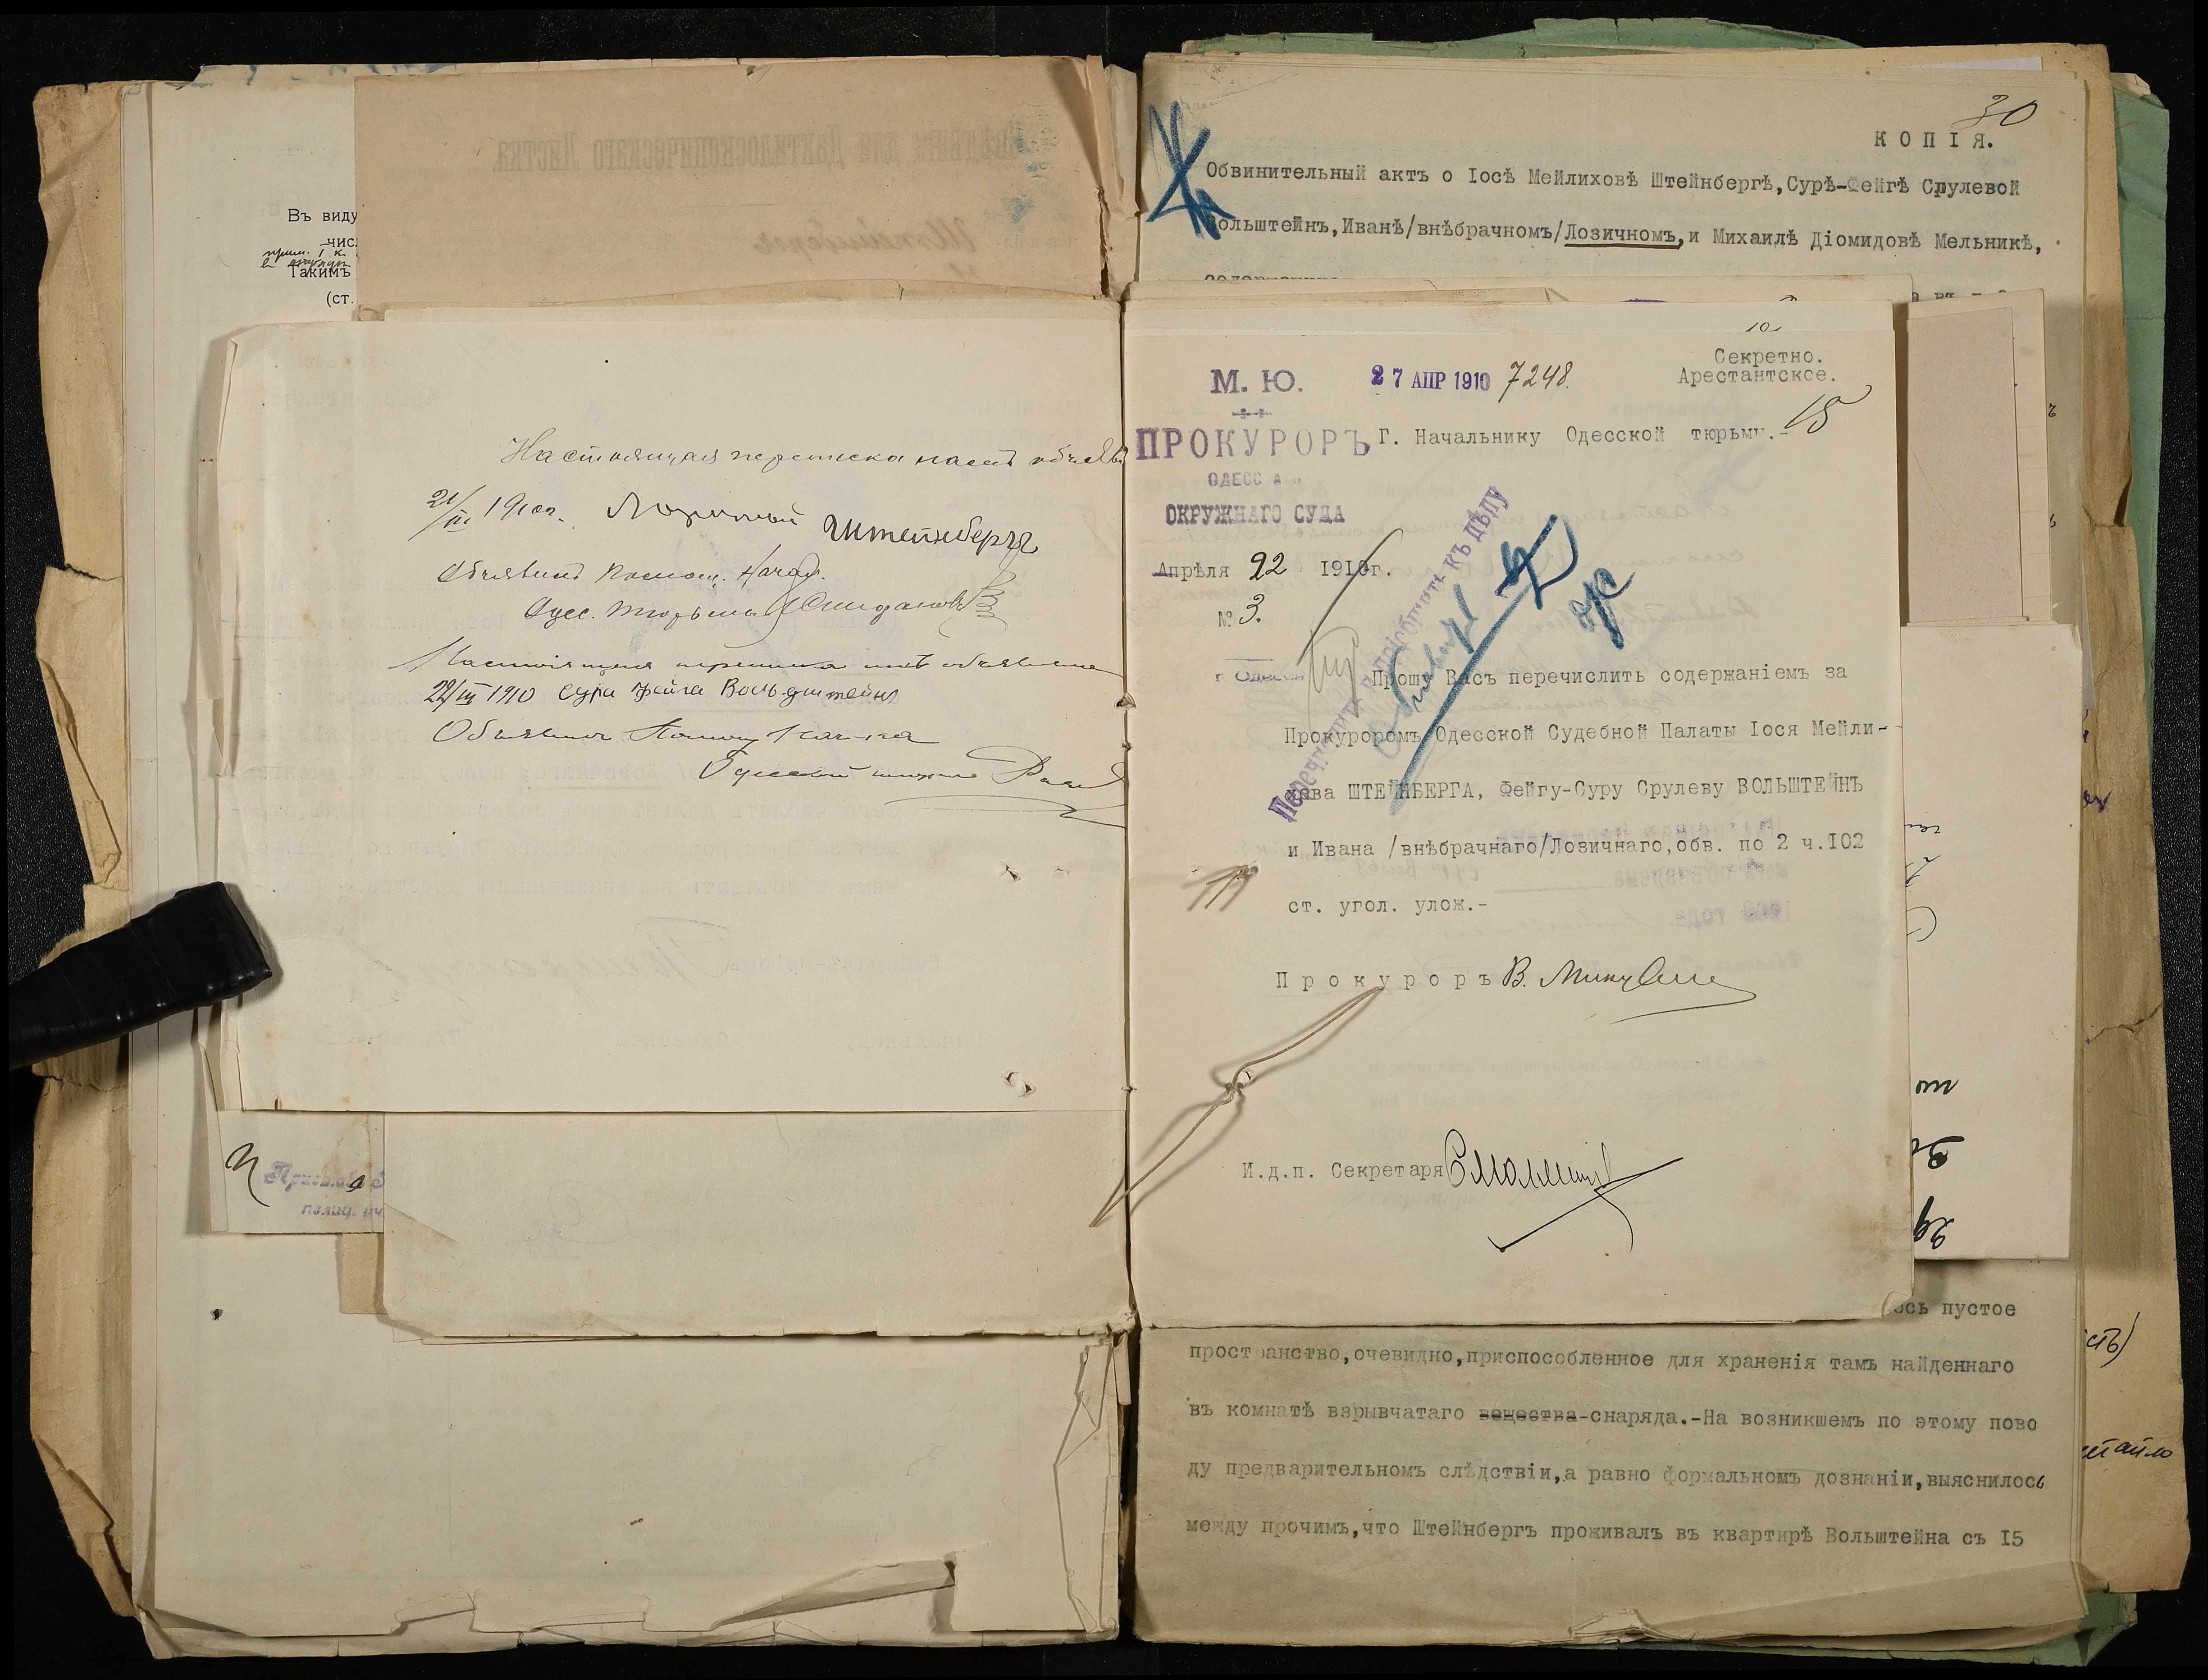 Въ виду
числ
прим. 1 к
Такимъ
(ст.
Настоящая переписка намъ объявл
21/III 1910г. Лозичный Штейнбергъ
Объявилъ Помощ. Начал.
Одес. тюрьмы
Настоящая переписка мнѣ объявлена
22/III 1910 Сура Фейга Вольдштейнъ
Объявилъ Помощ Нач-ка
Одесской тюрьмы
30
КОПІЯ.
Обвинительный актъ о Іосѣ Мейлиховѣ Штейнбергѣ,Сурѣ-Фейгѣ Срулевой
Вольштейнъ,Иванѣ/внѣбрачномъ/Лозичномъ,и Михаилѣ Діомидовѣ Мельникѣ,
Секретно.
Арестантское.
М. Ю.
27 АПР 1910 7248.
15
ПРОКУРОРЪ
Г. Начальнику Одесской тюрьмы.-
ОДЕСС
ОКРУЖНАГО СУДА
Апрѣля 22 1910г.
№ 3.
г. Одесса
Перечислить и пріобщить къ дѣлу
Прошу Васъ перечислить содержаніемъ за
Прокуроромъ Одесской Судебной Палаты Іося Мейли-
хова ШТЕЙНБЕРГА, Фейгу-Суру Срулеву ВОЛЬШТЕЙНЪ
и Ивана /внѣбрачнаго/Лозичнаго,обв. по 2 ч.102
ст. угол. улож.-
Прокуроръ В.
И.д.п. Секретаря
ось пустое
пространство,очевидно,приспособленное для храненія тамъ найденнаго
въ комнатѣ взрывчатаго вещества-снаряда.-На возникшемъ по этому пово
ду предварительномъ слѣдствіи,а равно формальномъ дознаніи,выяснилось
между прочимъ,что Штейнбергъ проживалъ въ квартирѣ Вольштейна съ 15